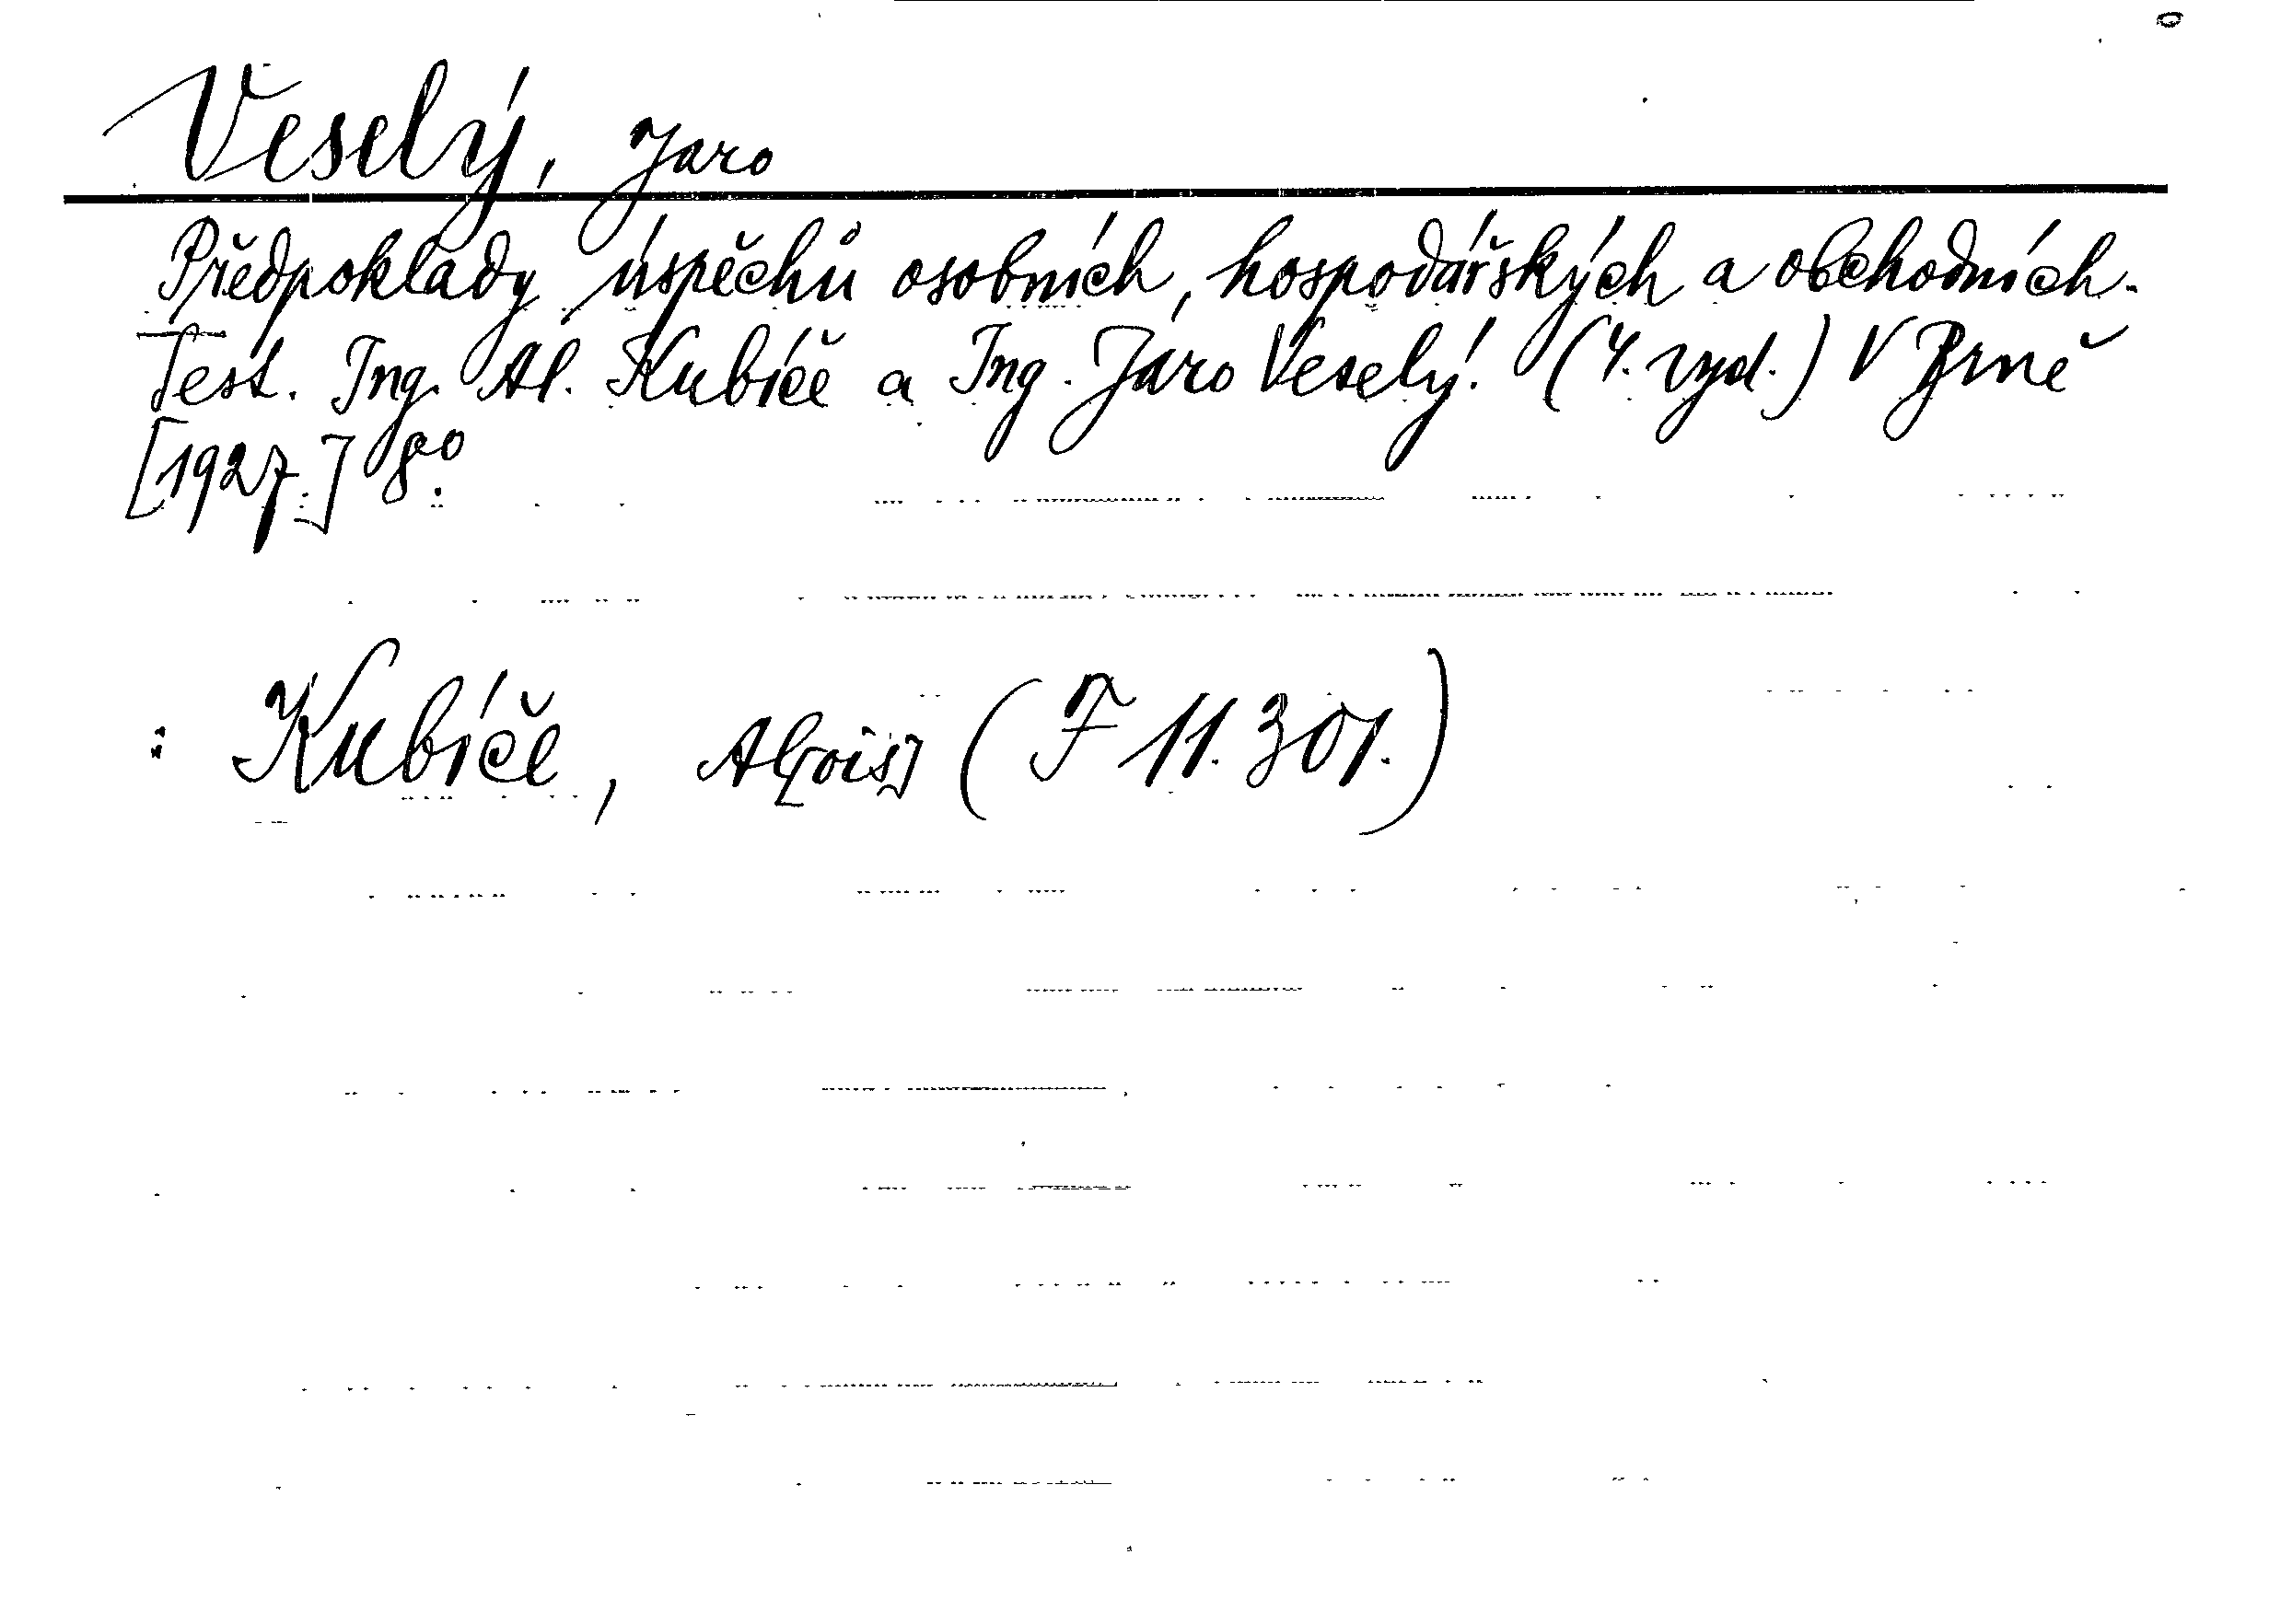 Veselý, Jaro
Předpoklady úspěchů osobních, hospodářských a obchodních.
Sest. Ing. Al. Kubíče a Ing. Jaro Veselý. (4. vyd.) V Brně
[1927.] 8°.
: Kubíče, Al[ois] (F 11.301.)